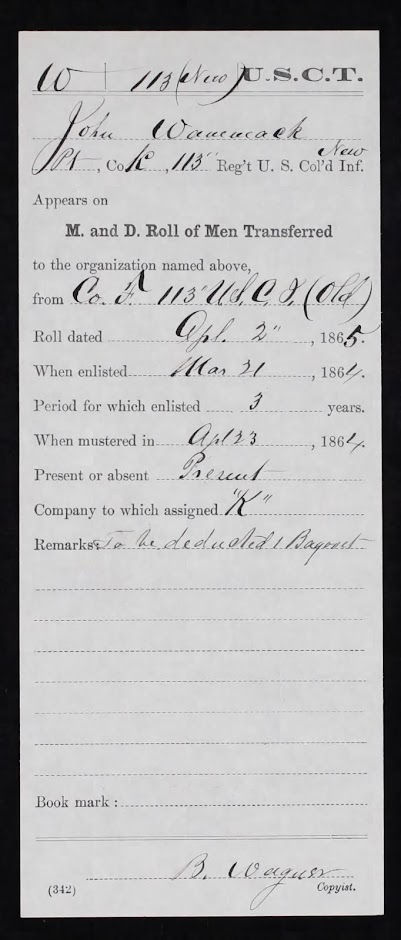 W | 113 (New) U.S.C.T.
John Wammack
Pt, Co. K, 113" Reg't U. S. Col'd Inf. New
Appears on
M. and D. Roll of Men Transferred
to the organization named above,
from Co. F 113" U.S.C.I. (Old)
Roll dated Apl. 2", 1865.
When enlisted Mar 21, 1864.
Period for which enlisted 3 years.
When mustered in Apl 23, 1864.
Present or absent Present
Company to which assigned "K"
Remarks: To be deducted 1 Bayonet
Book mark :
B. Wagner
(342) Copyist.